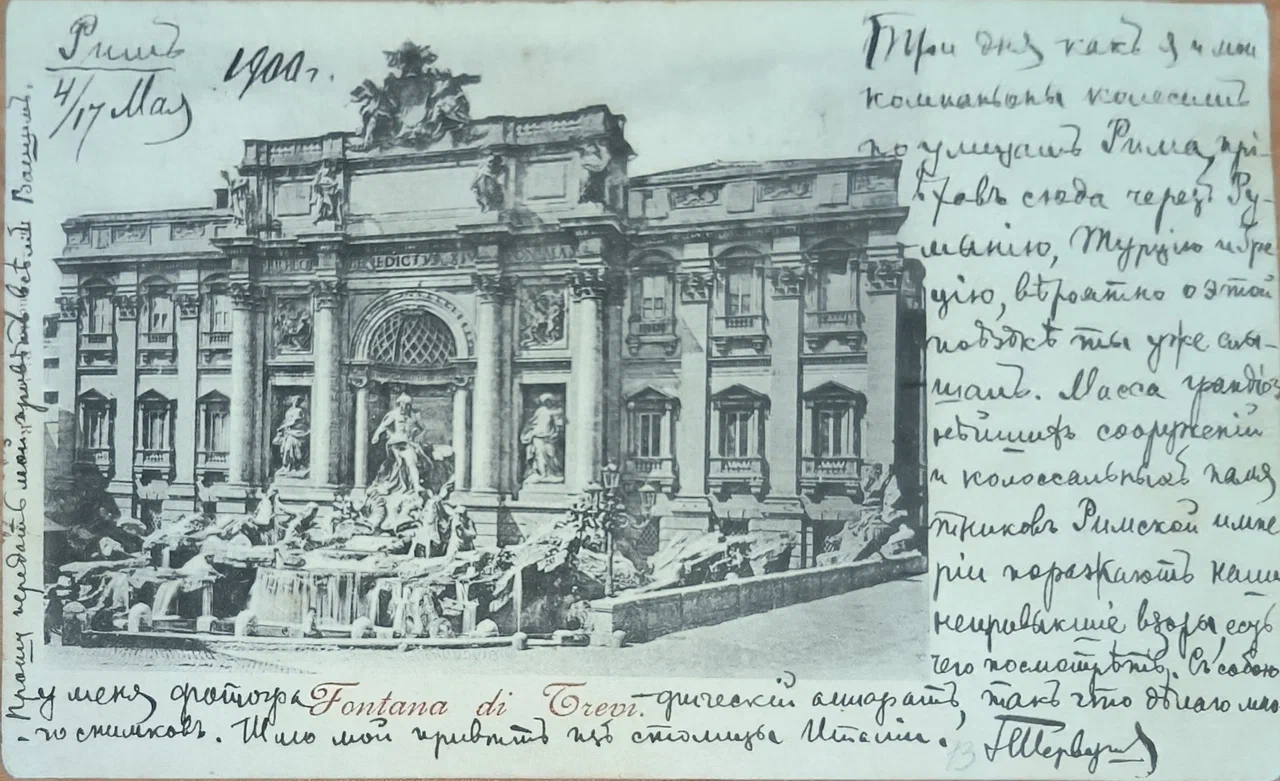 Римъ
4/17 Мая
1900 г.
Три дня какъ я и мои
компаньоны колесимъ
по улицамъ Рима, прі-
ѣхавъ сюда черезъ Ру-
мынію, Турцію и Гре
цію, вѣроятно о этой
поѣздкѣ ты уже слы-
шалъ. Масса грандіоз
нѣйшихъ сооруженій
и колоссальныхъ памя
тниковъ Римской импе
ріи поражаютъ наши
непривыкшіе взоры, есть
чего посмотрѣть. Съ собою
у меня фотогра-фическій аппаратъ, такъ что дѣлаю мно
-го снимковъ. Шлю мой привѣтъ изъ столицы Италіи.
Fontana di Trevi.
BENEDICTVS XIV
Прошу передать мой привѣтъ всѣмъ Вашимъ.
13